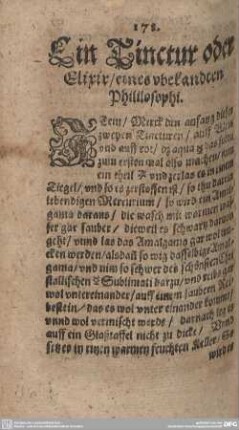 178.
Ein Tinctur oder
Elixir / eines vbekandten
Philosophi.
Jtem / Merck den anfang dieser
zweyen Tincturen / auff Weiß
vnd auff rot /
zum ersten mal also machen /
ein theil vnd zerlas es in einem
Tiegel / vnd so es zerflossen ist / so thu darein
lebendigen Mercurium / so wird ein Amal-
gama daraus / die wasch mit warmen was-
ser gar sauber / dieweil es schwartz daruon
geht / vnnd las das Amalgama gar wol
cken werden / alsdañ so weg dasselbige Amal-
gama / vnd nim so schwer des schönsten Chri-
stallischen Sublimati darzu / vnd
wol vntereinander / auff einem saubern Rei-
bestein / das es wol vnter einander komme /
vnnd wol vermischt werde / darnach leg es
auff ein Glaßtaffel nicht zu dicke / Vnnd
setz es in einen warmen feuchten Keller / so
wird es